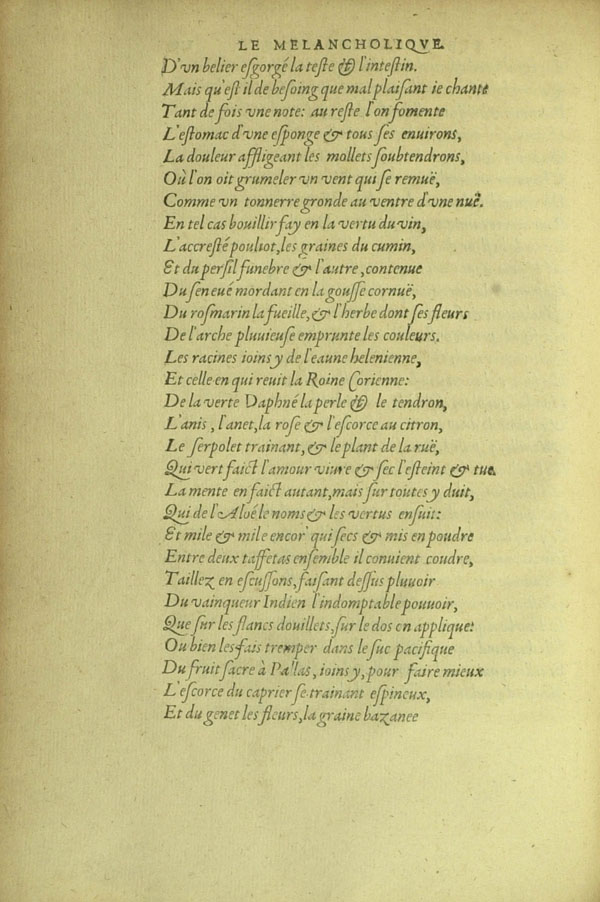 LE MELANCHOLIQVE.
D'vn belier esgorgé la teste & l'intestin.
Mais qu'est il de besoing que mal plaisant ie chante
Tant de fois vne note: au reste l'on fomente
L'estomac d'vne esponge & tous ses enuirons,
La douleur affligeant les mollets soubtendrons,
Où l'on oit grumeler vn vent qui se remuë,
Comme vn tonnerre gronde au ventre d'vne nuê.
En tel cas bouillir fay en la vertu du vin,
L'accresté pouliot, les graines du cumin,
Et du persil funebre & l'autre, contenue
Du seneué mordant en la gousse cornuë,
Du rosmarin la fueille, & l'herbe dont ses fleurs
De l'arche pluuieuse emprunte les couleurs.
Les racines ioins y de l'eaune helenienne,
Et celle en qui reuit la Roine Corienne:
De la verte Daphné la perle & le tendron,
L'anis, l'anet, la rose & l'escorce au citron,
Le serpolet trainant, & le plant de la ruë,
Qui vert faict l'amour viure & sec l'esteint & tue.
La mente en faict autant, mais sur toutes y duit,
Qui de l'Aloé le noms & les vertus ensuit:
Et mile & mile encor' qui secs & mis en poudre
Entre deux taffetas ensemble il conuient coudre,
Taillez en escussons, faisant dessus pluuoir
Du vainqueur Indien l'indomptable pouuoir,
Que sur les flancs douillets, sur le dos on applique:
Ou bien les fais tremper dans le suc pacifique
Du fruit sacre à Pallas, ioins y, pour faire mieux
L'escorce du caprier se trainant espineux,
Et du genet les fleurs, la graine bazanee